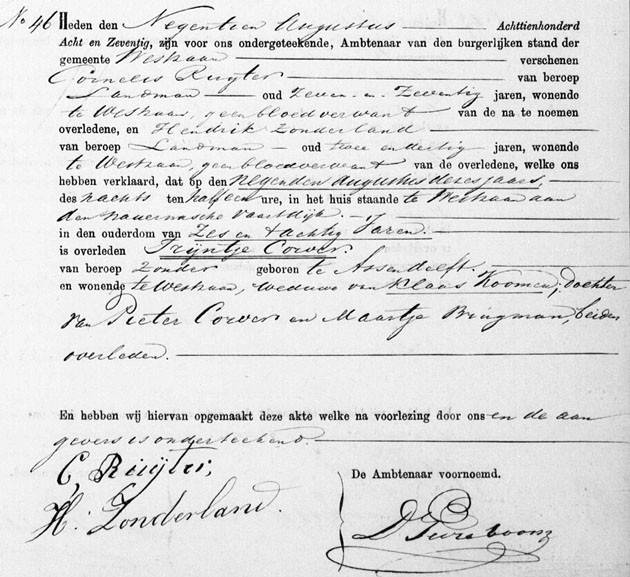 No 46 Heden den Negentien Augustus Achttienhonderd
Acht en Zeventig, zijn voor ons ondergeteekende, Ambtenaar van den burgerlijken stand der
gemeente Westzaan verschenen
Cornelis Ruyter van beroep
Landman oud Zeven-en-Zeventig jaren, wonende
te Westzaan, geen bloedverwant van de na te noemen
overledene, en Hendrik Zonderland
van beroep Landman oud twee en dertig jaren, wonende
te Westzaan, geen bloedverwant van de overledene, welke ons
hebben verklaard, dat op den Negenden Augustus dezes jaars,
des nachts ten half een ure, in het huis staande te Westzaan aan
den Vaartdijk.
in den ouderdom van Zes en tachtig Jaren.
is overleden Trijntje Cower.
van beroep Zonder geboren te Assendelft.
en wonende te Westzaan, weduwe van Klaas Koomen, dochter
van Pieter Cower en Maartje Bringman, beiden
overleden.
En hebben wij hiervan opgemaakt deze akte welke na voorlezing door ons en de aan
gevers is onderteekend.
C. Ruijter,
H. Zonderland.
De Ambtenaar voornoemd.